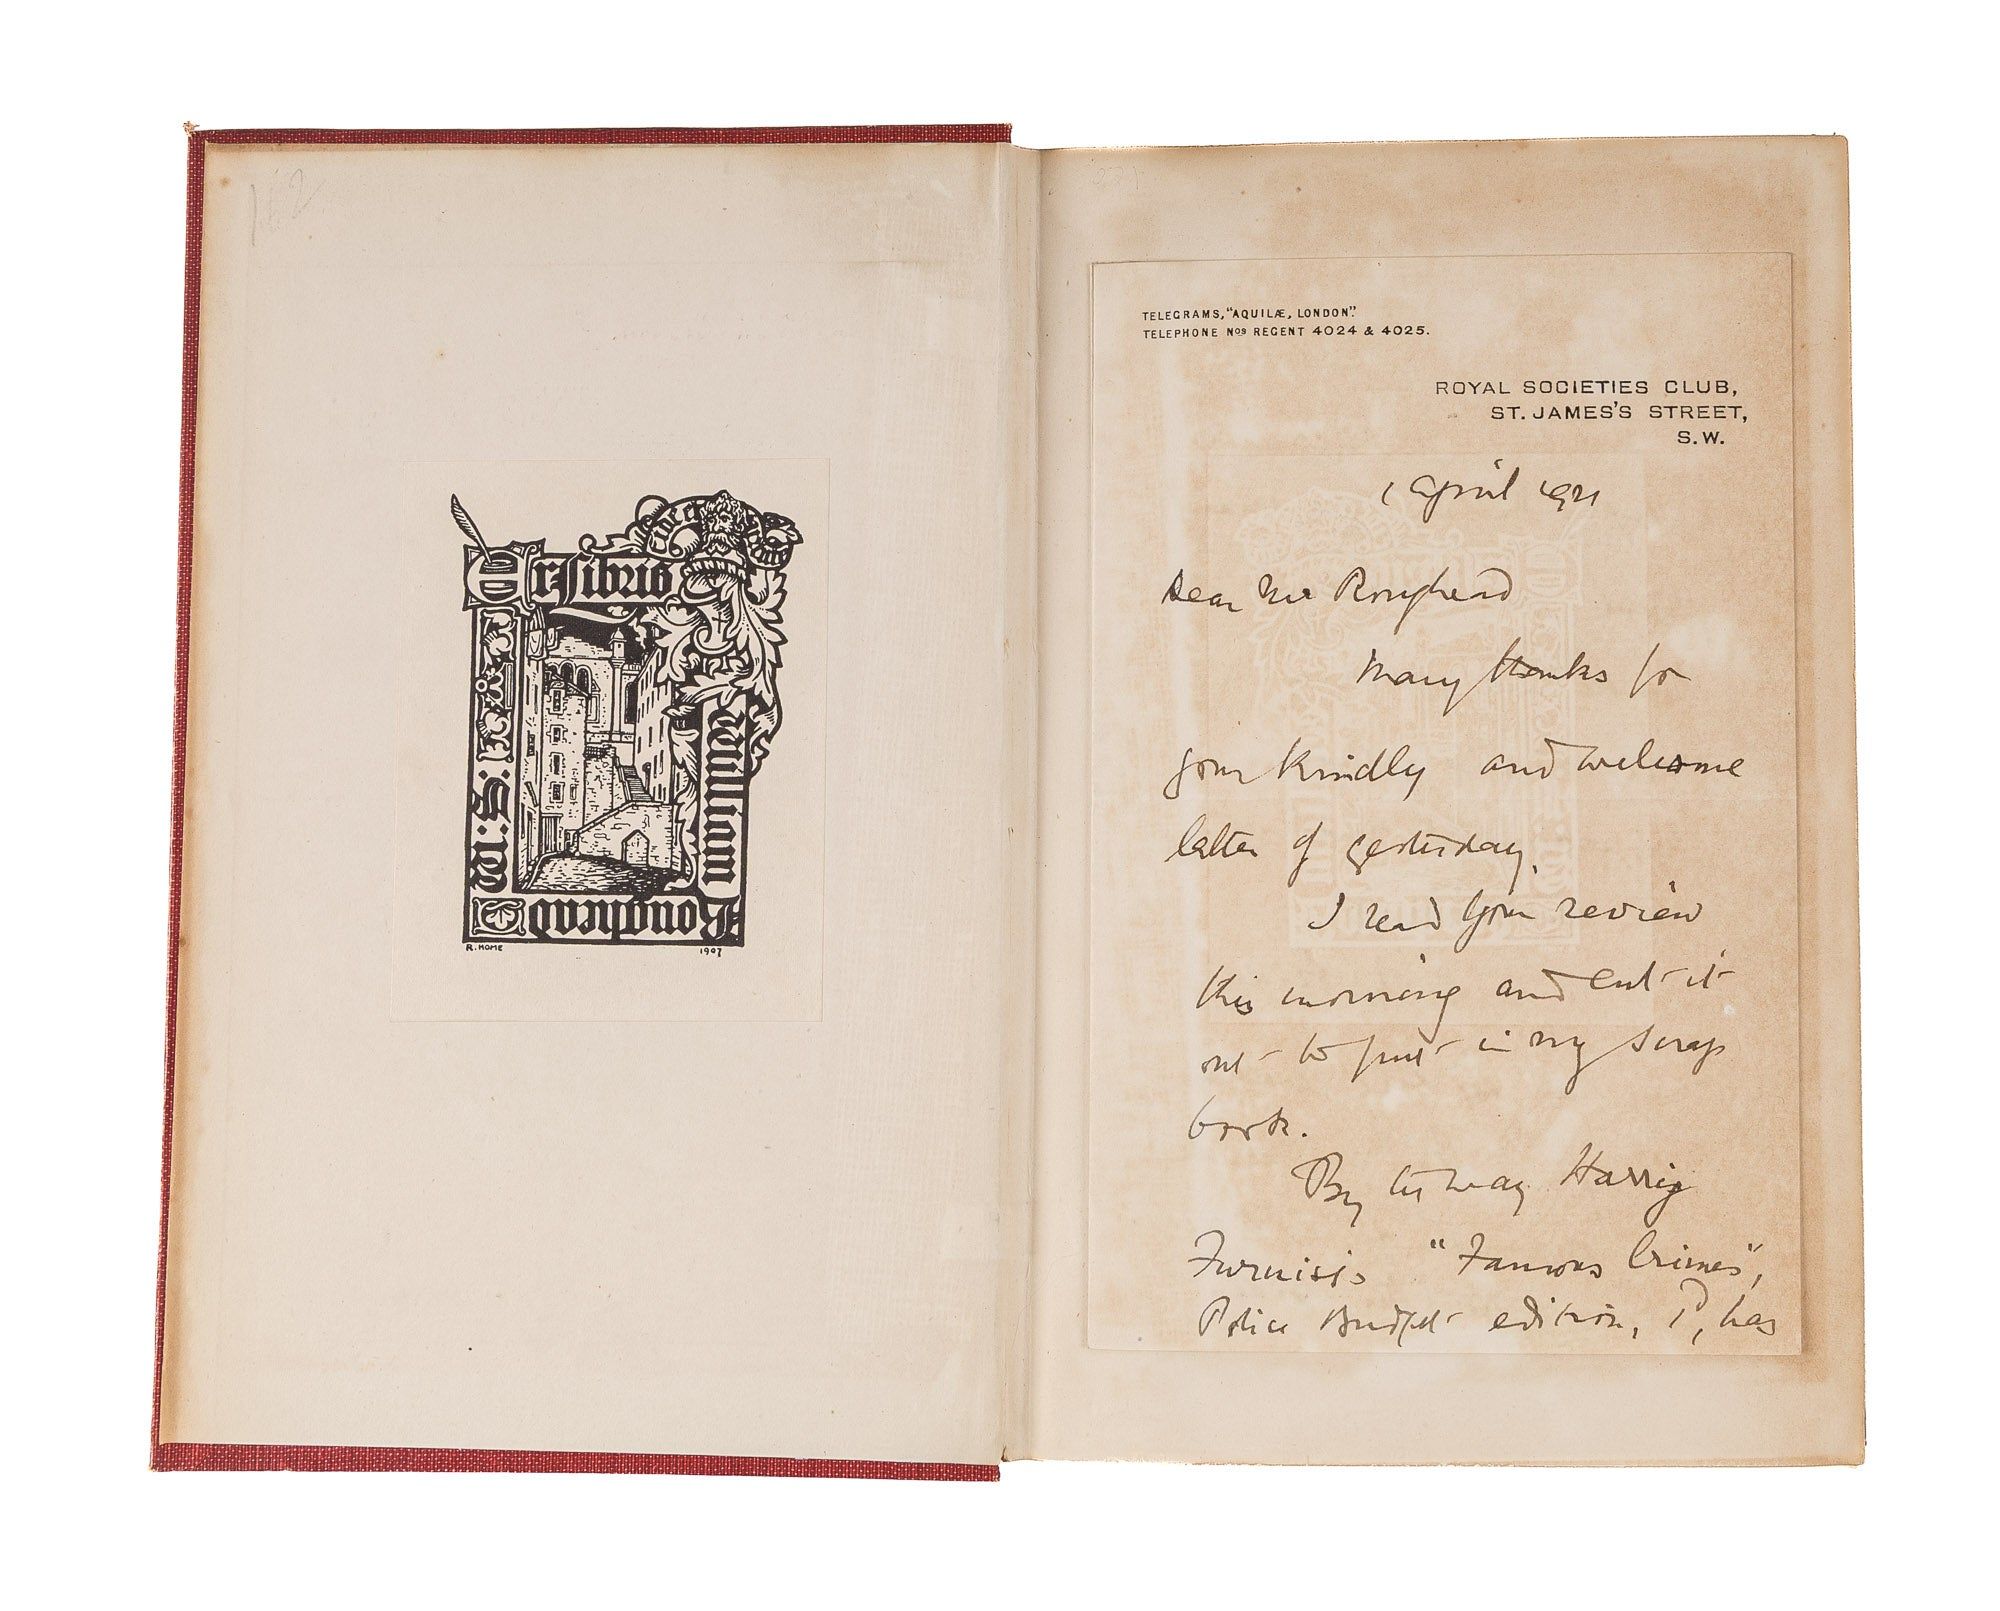 162
Ex Libris
William
Roughead
W: S:
R. HOME
1907
TELEGRAMS, "AQUILÆ, LONDON".
TELEPHONE Nos REGENT 4024 & 4025.
ROYAL SOCIETIES CLUB,
ST. JAMES'S STREET,
S.W.
1 April 1921
Dear Mr Roughead
Many thanks for
your kindly and welcome
letter of yesterday.
I read your review
this morning and cut it
out to put in my scrap
book.
By the way Harry
Furniss's "Famous Crimes",
Police Budget edition, 1D, has